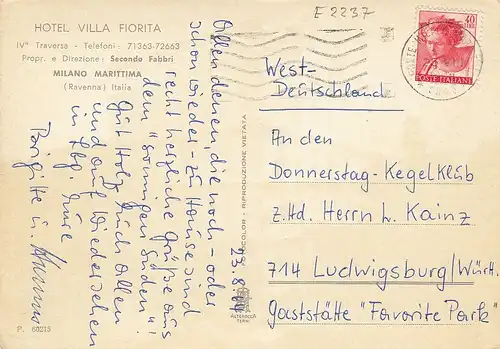 HOTEL VILLA FIORITA
IVª Traversa - Telefoni: 71363-72663
Propr. e Direzione: Secondo Fabbri
MILANO MARITTIMA
(Ravenna) Italia
E 2237
40
LIRE
POSTE ITALIANE
23.8.
Allen denen, die noch - oder
schon wieder - zu Hause sind
recht herzliche Grüße aus
dem "sonnigen Süden"!
Gut Holz Euch allen
und auf Wiedersehen
in Lbg. Eure
Brigitte u.
FOTOCOLOR - RIPRODUZIONE VIETATA
ALTEROCCA
TERNI
West-
Deutschland
An den
Donnerstag-Kegelklub
z.Hd. Herrn L. Kainz
714 Ludwigsburg/Württ.
Gaststätte "Favorite Park"
P. 60215